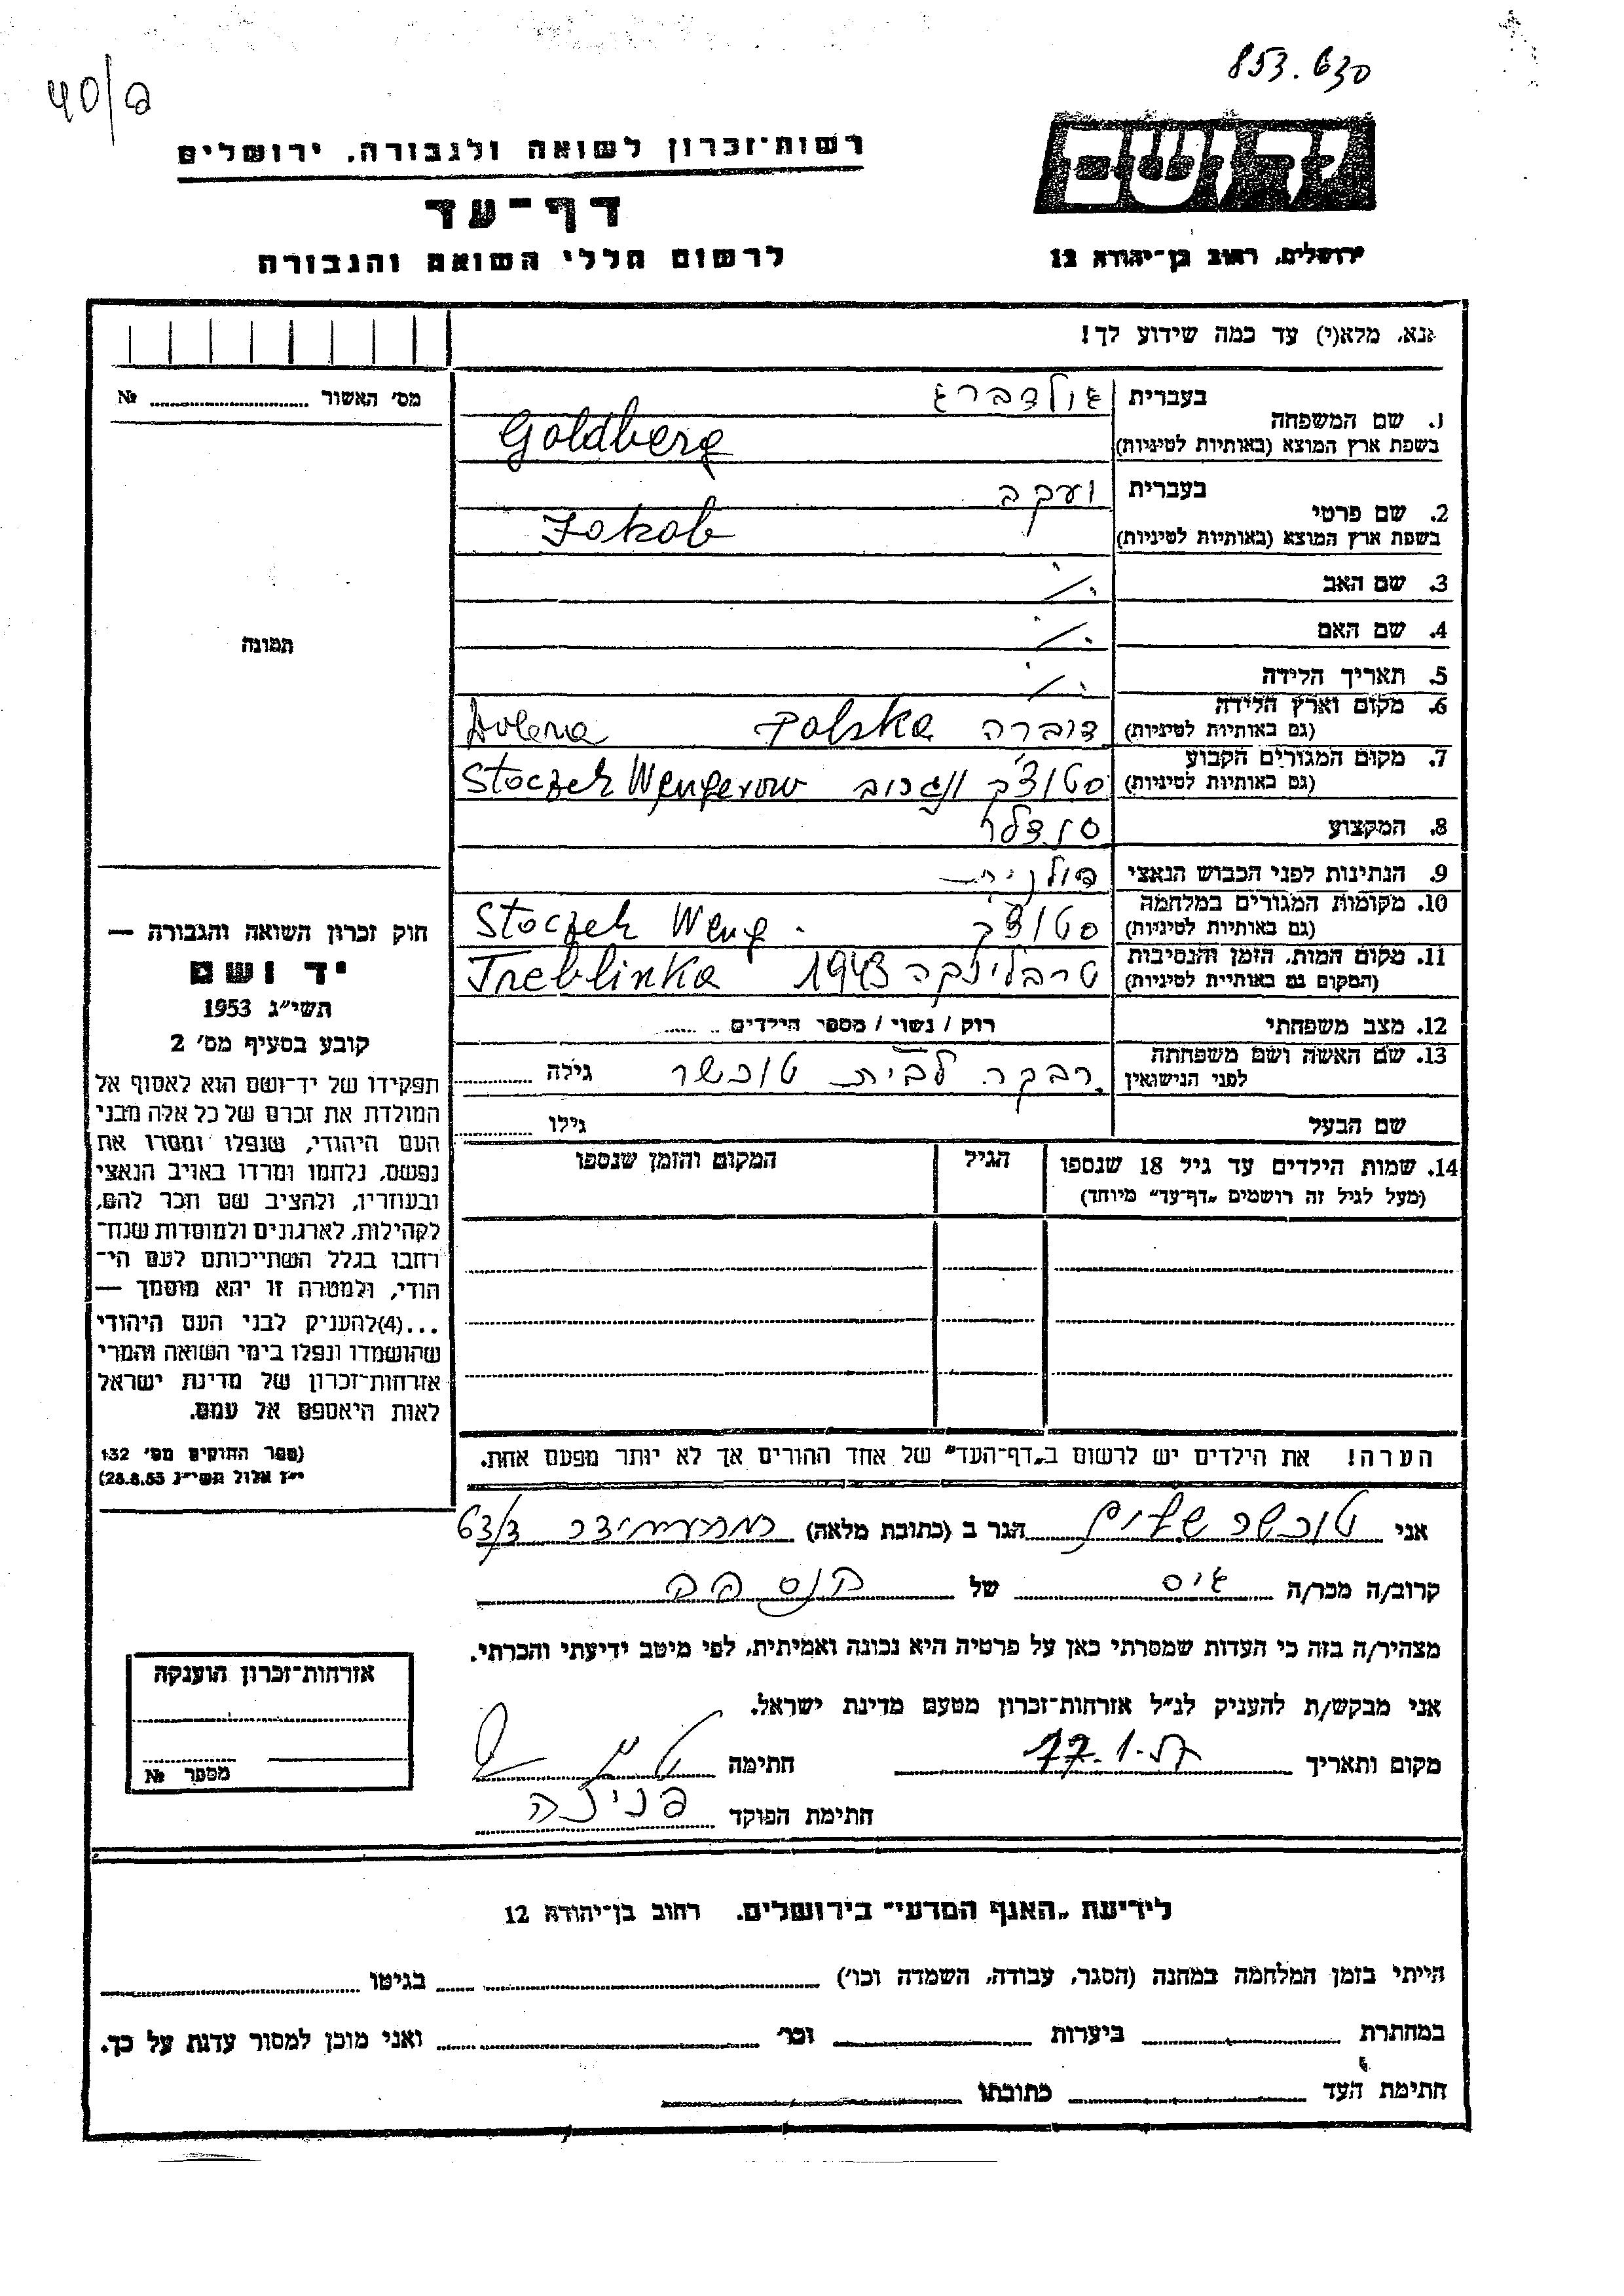 853.630
40/ם
רשות־זכרון לשואה ולגבורה, ירושלים
יד ושם
דף־עד
לרשום חללי השואה והגבורה
ירושלים, רחוב בן־יהודה 12
אנא, מלא(י) עד כמה שידוע לך!
מס׳ האשור № 
1. שם המשפחה
בעברית גולדברג
בשפת ארץ המוצא (באותיות לטיניות) Goldberg
2. שם פרטי
בעברית יעקב
בשפת ארץ המוצא (באותיות לטיניות) Jakob
3. שם האב ./.
4. שם האם ./.
תמונה
5. תאריך הלידה ./.
6. מקום וארץ הלידה
(גם באותיות לטיניות) דוברה Polska
7. מקום המגורים הקבוע
(גם באותיות לטיניות) סטוצ׳ק ונגרוב Stoczek Wengerow
8. המקצוע סנדלר
9. הנתינות לפני הכבוש הנאצי פולנית
10. מקומות המגורים במלחמה
(גם באותיות לטיניות) סטוצ׳ק Stoczek Weng.
11. מקום המות, הזמן והנסיבות
(המקום גם באותיית לטיניות) טרבלינקה 1943 Treblinka
12. מצב משפחתי רוק / נשוי / מספר הילדים
13. שם האשה ושם משפחתה
לפני הנישואין רבקה לבית טוכשר גילה
שם הבעל גילו
14. שמות הילדים עד גיל 18 שנספו
(מעל לגיל זה רושמים „דף־עד״ מיוחד)
הגיל
המקום והזמן שנספו
חוק זכרון השואה והגבורה —
יד ושם
תשי״ג 1953
קובע בסעיף מס׳ 2
תפקידו של יד־ושם הוא לאסוף אל
המולדת את זכרם של כל אלה מבני
העם היהודי, שנפלו ומסרו את
נפשם, נלחמו ומרדו באויב הנאצי
ובעוזריו, ולהציב שם וזכר להם,
לקהילות, לארגונים ולמוסדות שנח־
רבו בגלל השתייכותם לעם הי־
הודי, ולמטרה זו יהא מוסמך —
...(4)להעניק לבני העם היהודי
שהושמדו ונפלו בימי השואה והמרי
אזרחות־זכרון של מדינת ישראל
לאות היאספם אל עמם.
(ספר החוקים מס׳ 132
י״ז אלול תשי״ג 28.8.53)
הערה! את הילדים יש לרשום ב„דף־העד״ של אחד ההורים אך לא יותר מפעם אחת.
אני טוכשר שלום הגר ב (כתובת מלאה) 63/3
קרוב/ה מכר/ה גיס של הנספה
מצהיר/ה בזה כי העדות שמסרתי כאן על פרטיה היא נכונה ואמיתית, לפי מיטב ידיעתי והכרתי.
אני מבקש/ת להעניק לנ״ל אזרחות־זכרון מטעם מדינת ישראל.
מקום ותאריך חתימה
חתימת הפוקד פנינה
אזרחות־זכרון הוענקה
מספר №
לידיעת „האגף המדעי״ בירושלים, רחוב בן־יהודה 12
הייתי בזמן המלחמה במחנה (הסגר, עבודה, השמדה וכו׳) בגיטו
במחתרת ביערות וכו׳ ואני מוכן למסור עדות על כך.
חתימת העד כתובתו